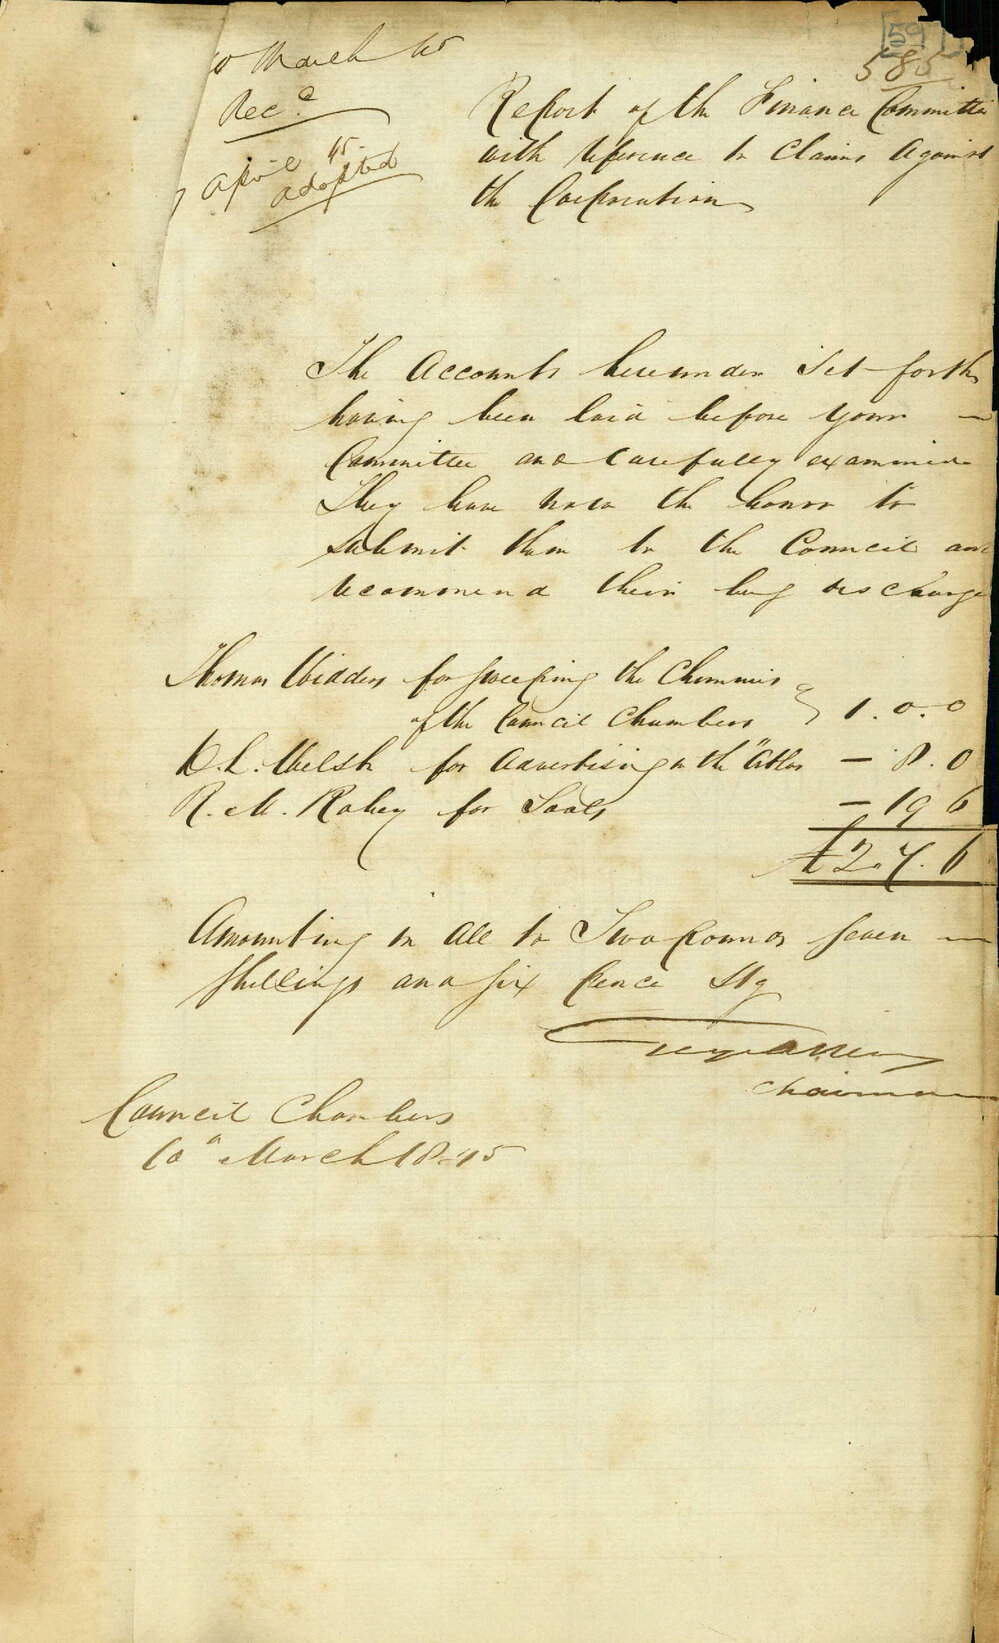 59
585
10 March 45
Recd
7 April 45
adopted
Report of the Finance Committee
with reference to Claims Against
the Corporation
The Accounts hereunder Set forth
having been laid before your
Committee and carefully examined
They have now the honor to
submit them to the Council and
recommend their being discharged
Thomas Widders for sweeping the Chimnies
of the Council Chambers } 1.0.0
D. L. Welsh for Advertising in the "Atlas — 8.0
R. M. Robey for Seals — 19 6
£2.7.6
Amounting in all to Two pounds seven
shillings and six pence Stg
Chairman
Council Chambers
10" March 1845